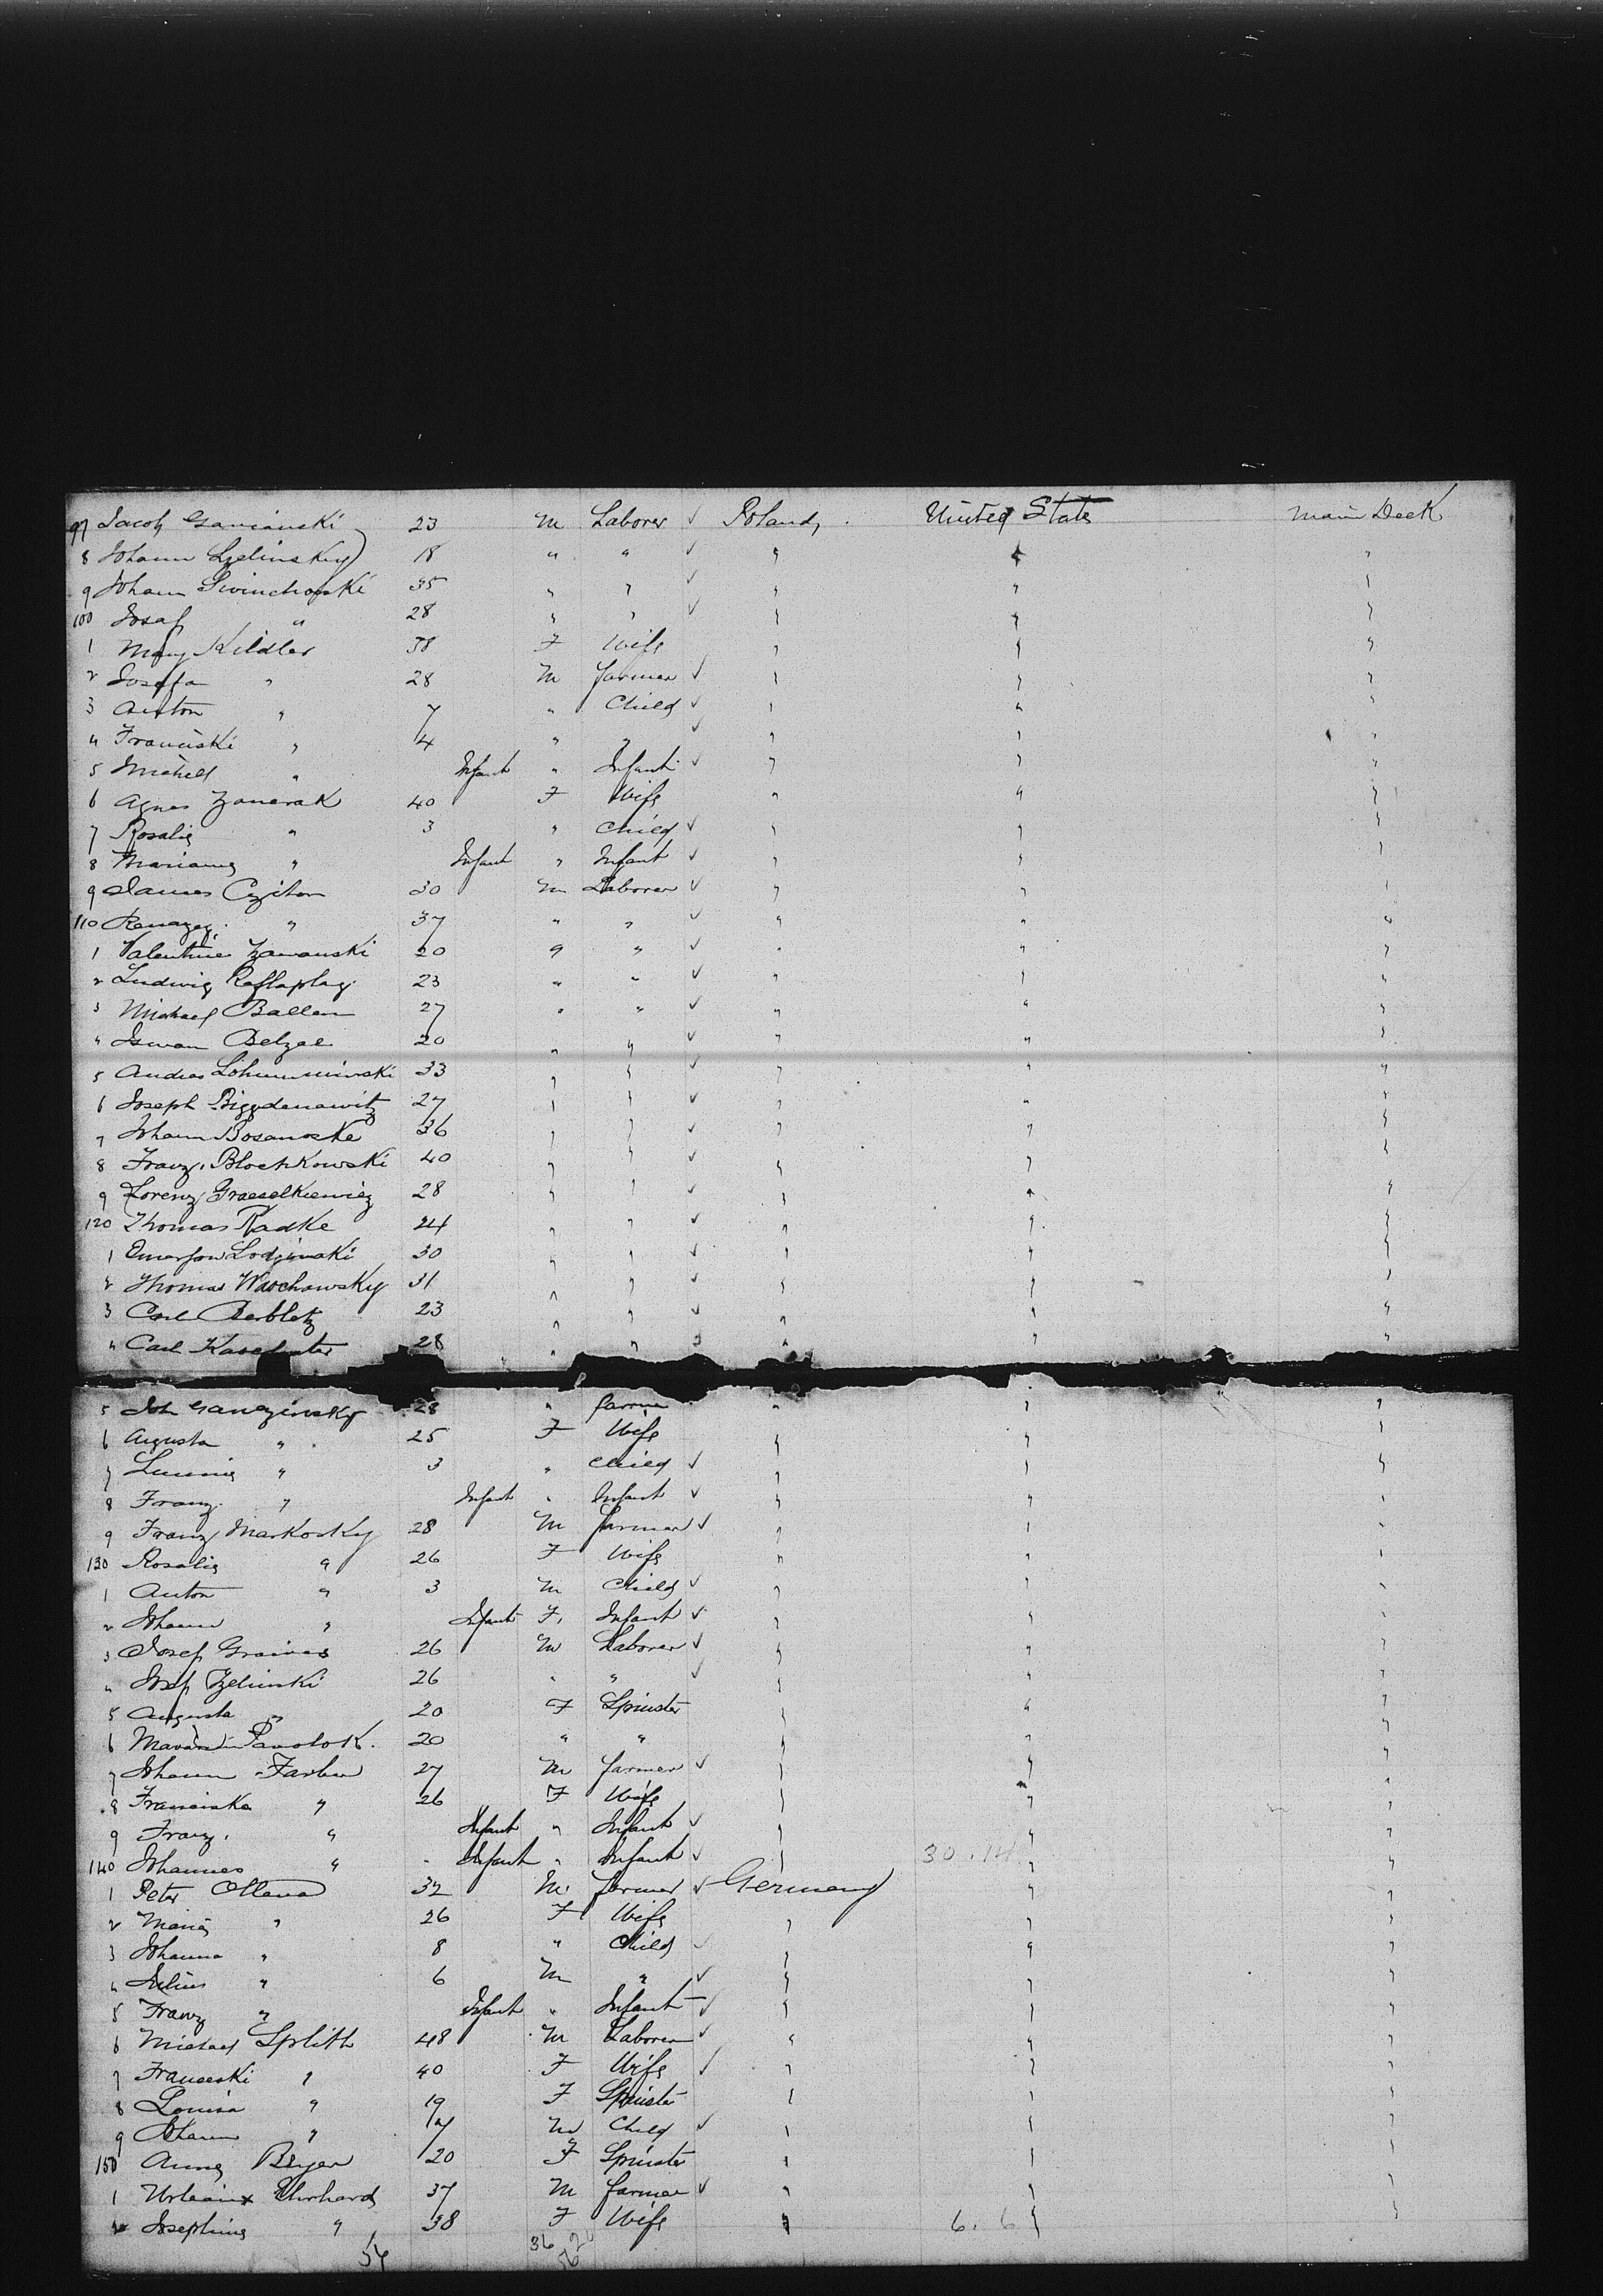 97 Jacob Ganianski 23 M Laborer ✓ Poland, United States Main Deck
8 Johann Lzelinsky 18 " " ✓ " " "
9 Johann Swinchoski 35 " " ✓ " " "
100 Josaf " 28 " " ✓ " " "
1 Mary Kildler 38 F Wife " " "
2 Josefa " 28 M farmer ✓ " " "
3 Anton " 7 " Child ✓ " " "
4 Franciski " 4 " " ✓ " " "
5 Michell " Infant " Infant ✓ " " "
6 Agnes 40 F Wife " " "
7 Rosalie " 3 " Child ✓ " " "
8 Marianne " Infant " Infant ✓ " " "
9 James Cziton 30 M Laborer ✓ " " "
110 " 37 " " ✓ " " "
1 Valentine Zawanski 20 " " ✓ " " "
2 Ludwig 23 " " ✓ " " "
3 Michael Ballen 27 " " ✓ " " "
4 Belzae 20 " " ✓ " " "
5 Andreas 33 " " ✓ " " "
6 Joseph 27 " " ✓ " " "
7 Johann Bosanoske 36 " " ✓ " " "
8 Franz. Blochkowski 40 " " " " "
9 Lorenz Graeselkiewiez 28 " " ✓ " " "
120 Thomas Radke 24 " " ✓ " " "
1 Lodzinski 30 " " ✓ " " "
2 Thomas Wachowsky 31 " " ✓ " " "
3 Carl Berbletz 23 " " ✓ " " "
4 Carl 28 " " " " "
5 Joh Ganczinsky 28 " farmer " " "
6 Augusta " 25 F Wife " " "
7 " 3 " Child ✓ " " "
8 Franz. " Infant " Infant ✓ " " "
9 Franz Markosky 28 M farmer ✓ " " "
130 Rosalie " 26 F Wife " " "
1 Anton " 3 M Child ✓ " " "
2 Johann " Infant F. Infant ✓ " " "
3 Josef Graives 26 M Laborer ✓ " " "
4 Josef Zelinski 26 " " ✓ " " "
5 Augusta " 20 F Spinster " " "
6 Pawolok. 20 " " " " "
7 Johann Farber 27 M farmer ✓ " " "
8 Franciska " 26 F Wife " " "
9 Franz. " Infant " Infant ✓ " " "
140 Johannes " Infant " Infant ✓ " 30.14 " "
1 Peter Ottawa 32 M. farmer ✓ Germany " "
2 Maria " 26 F Wife " " "
3 Johanna " 8 " Child ✓ " " "
4 Julius " 6 M " ✓ " " "
5 Franz " Infant " Infant ✓ " " "
6 Michael Splith 48 M Laborer ✓ " " "
7 Franceski " 40 F Wife ✓ " " "
8 Louisa " 19 F Spinster " " "
9 Johann " M Child ✓ " " "
150 Anna Beyer 20 F Spinster " " "
1 Ehrhard 37 M farmer ✓ " " "
2 Josephine " 38 F Wife " 6.6 " "
54 36 20
56